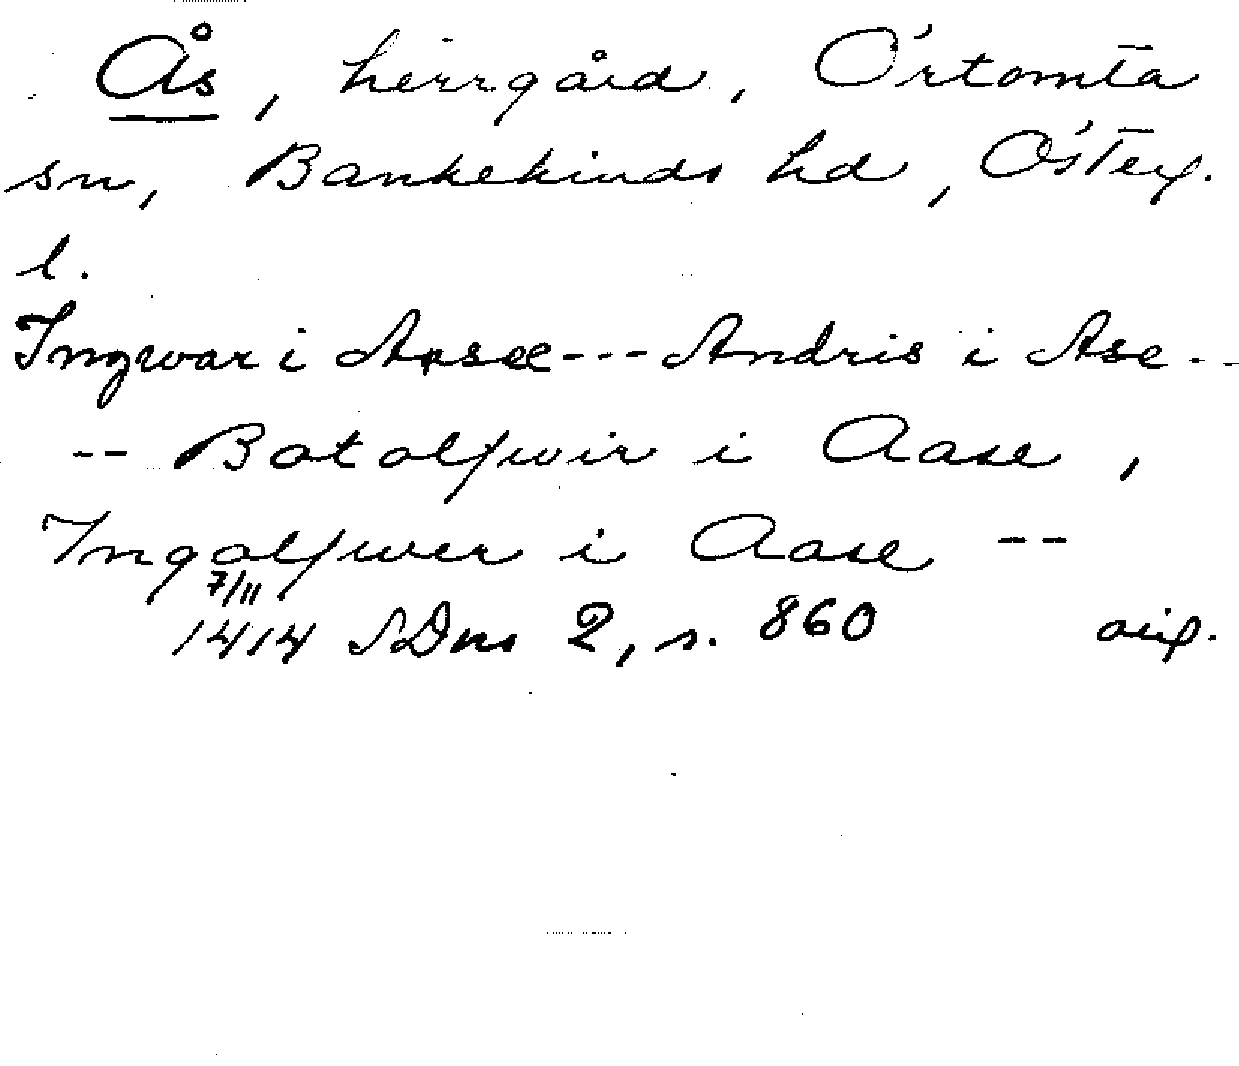 Ås, herrgård, Örtomta
sn, Bankekinds hd, Österg.
l.
Ingwar i Aasæ --- Andris i Ase --
-- Botolfwir i Aase,
Ingolfwer i Aase --
7/11
1414 SDns 2, s. 860 orig.